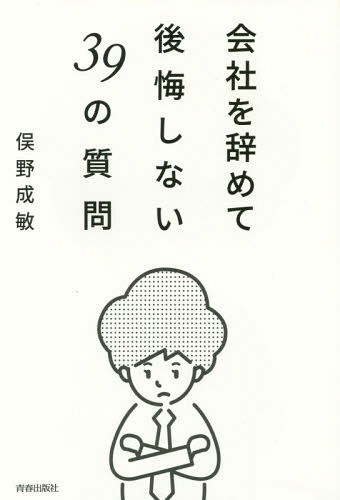 会社を辞めて
後悔しない
39の質問
俣野成敏
青春出版社